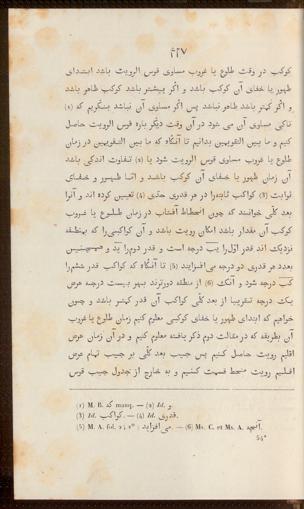 ۴۲۷
کوکب در وقت طلوع یا غروب مساوی قوس الرویت باشد ابتدای
ظهور یا خفای آن کوکب باشد و اگر پیشتر باشد کوکب ظاهر باشد
و اگر کمتر باشد ظاهر نباشد پس اگر مساوی آن نباشد بنگریم که (1)
تاکی مساوی آن می شود در آن وقت دیگر باره قوس الرویت حاصل
کنیم و ما بین التقویمین بدانیم تا آنگاه که ما بین التقویمین در زمان
طلوع یا غروب مساوی قوس الرویت شود یا (2) تفاوت اندکی باشد
آن زمان ظهور یا خفای آن کوکب باشد و اما ظهور و خفای
ثوابت (3) کواکب ثابته‌را در هر قدری حدی (4) تعیین کرده اند و آنرا
بعد کلّی خوانند که چون انحطاط آفتاب در زمان طلوع یا غروب
کوکب آن مقدار باشد امکان رویت باشد و آن کواکبی‌را که بمنطقه
نزدیک اند قدر اوّل‌را یب درجه است و قدر دوم‌را ید و همچنین
بعدد هر قدری دو درجه می‌افزایند (5) تا آنگاه که کواکب قدر ششم‌را
کب درجه شود و آنک (6) از منطقه دورترند بهر بیست درجه عرض
یک درجه تقریبا از بعد کلّی کواکب آن قدر کمتر باشد و چون
خواهیم که ابتدای ظهور یا خفای کوکبی معلوم کنیم زمان طلوع یا غروب
آن بطریقه که در مقالت دوم ذکر یافته معلوم کنیم و در آن زمان عرض
اقلیم رویت حاصل کنیم پس جیب بعد کلّی بر جیب تمام عرض
اقلیم رویت منحط قسمت کنیم و به خارج از جدول جیب قوس
(1) M. B. که manq. — (2) Id. و.
(3) Id. کواکب. — (4) Id. قدری.
(5) M. A. fol. می افزاید. — (6) Ms. C. et Ms. A. آنچه.
54*